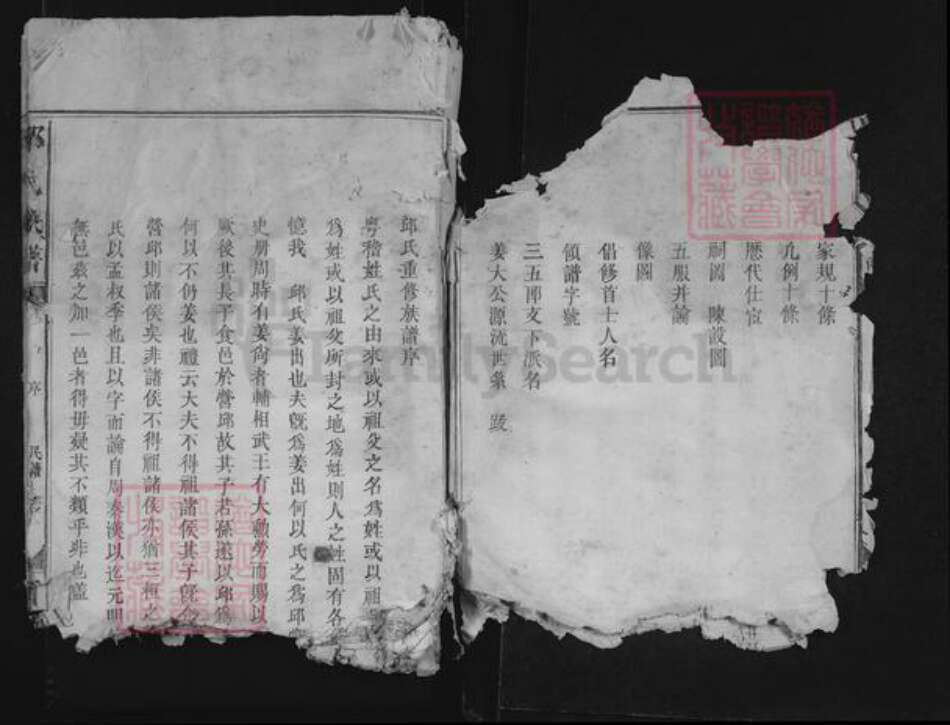 家規十條
凡例十條
歷代仕宦
嗣圖 陳設圖
五服并論
像圖
倡修首士人名
領譜字號
三五郎文下派名
姜大公源流世系 跋
邱氏重修族譜序
粵稽姓氏之由來或以祖父之名為姓或以祖
為姓或以祖父所封之地為姓則人之姓固有各
憶我 邱氏姜出也夫旣為姜出何以氏之為邱
史册周時有姜尙者輔相武王有大勳勞而賜以
厥後其長子食邑於營邱故其子若孫遂以邱為
何以不仍姜也禮云大夫不得祖諸侯其子旣食
營邱則諸侯矣非諸侯不得祖諸侯亦猶三桓之
氏以孟叔季也且以字而論自周秦漢以迄元明
無邑旁之加一邑者得毋疑其不類乎非也蓋
序
FamilySearch